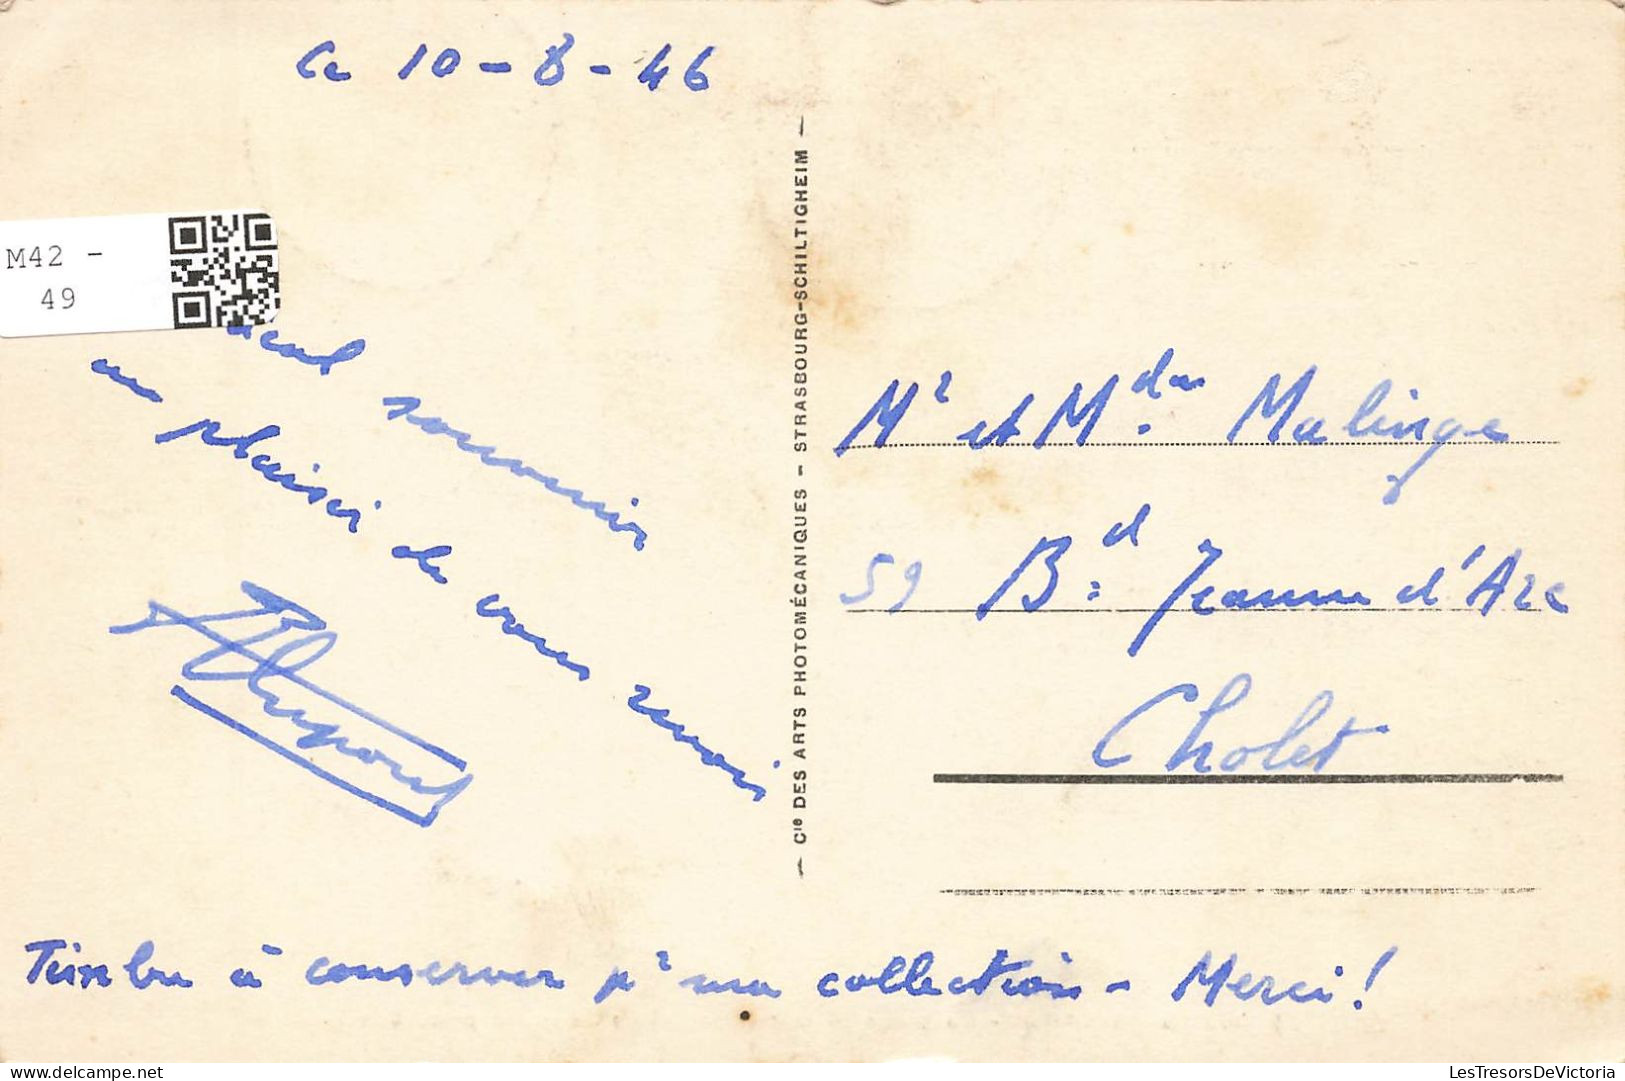 Ce 10-8-46
M42 -
49
souvenir
au plaisir de vous revoir
Timbre à conserver pr ma collection - Merci!
— Cie DES ARTS PHOTOMÉCANIQUES — STRASBOURG-SCHILTIGHEIM —
Mr et Mde. Malinge
59 Bd: Jeanne d'Arc
Cholet
LesTresorsDeVictoria
delcampe.net